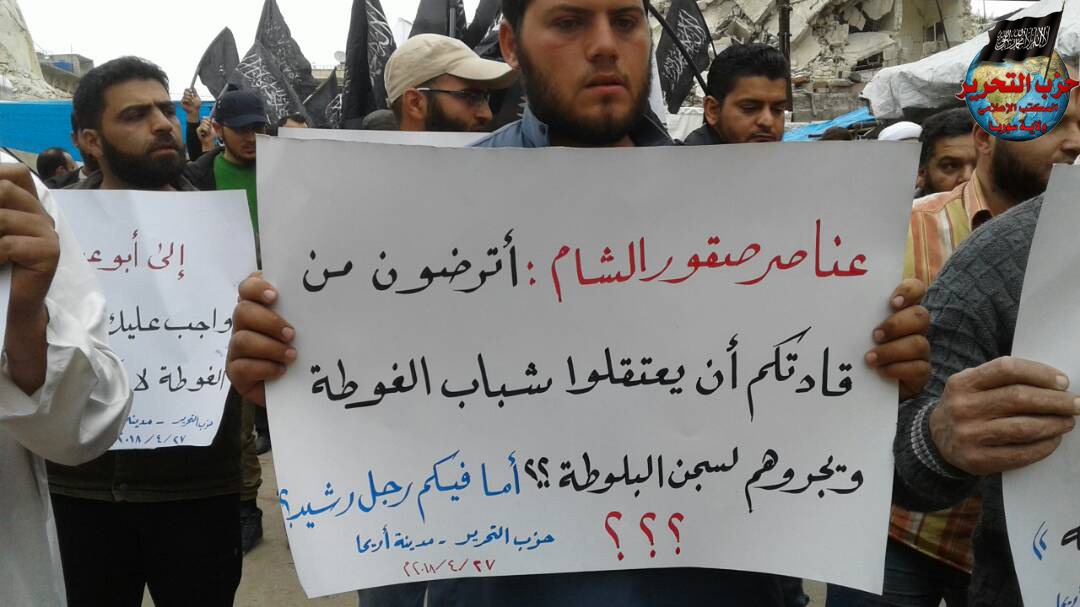 عناصر صقور الشام : أترضون من
قادتكم أن يعتقلوا شباب الغوطة
ويجروهم لسجن البلوطة ؟؟ أما فيكم رجل رشيد؟
؟ ؟ ؟
حزب التحرير - مدينة أريحا
٢٧ / ٤ / ٢٠١٨م
إلى أبو
واجب عليك
الغوطة لا
حزب التحرير - مدينة
٢٧ / ٤ / ٢٠١٨
حزب التحرير
المكتب الإعلامي
ولاية سوريا